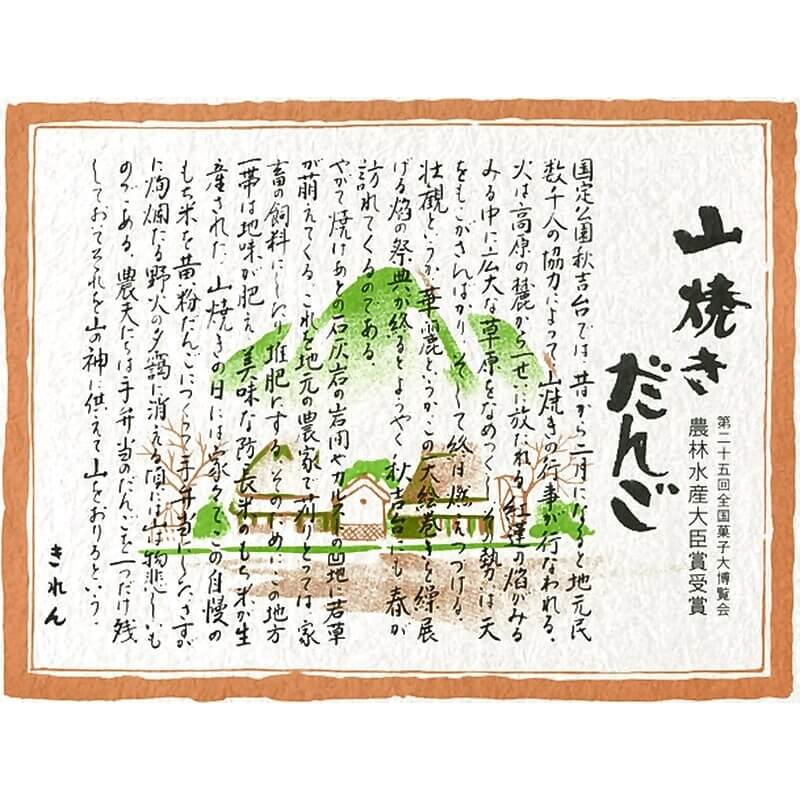 山焼き
だんご
第二十五回全国菓子大博覧会
農林水産大臣賞受賞
国定公園秋吉台では、昔から二月になると地元民
数千人の協力によって山焼きの行事が行なわれる。
火は高原の麓から一せいに放たれる紅蓮の焔がみる
みる中に広大な草原をなめつくし、その勢は天
をもこがさんばかり、そして終日燃えつづける。
壮観というか華麗というか、この大絵巻きを繰展
げる焔の祭典が終るとようやく秋吉台にも春が
訪れてくるのである。
やがて焼けあとの石灰岩の岩間やカルストの凹地に若草
が萌えてくる。これを地元の農家で苅りとっては、家
畜の飼料にしたり堆肥にする。そのためにこの地方
一帯は地味が肥え、美味な防長米のもち米が生
産された。山焼きの日には家々でこの自慢の
もち米を黄粉だんごにつくって手弁当にした。さすが
に絢爛たる野火の夕靄に消える頃には物悲しいも
のである。農夫たちは手弁当のだんごを一つだけ残
しておてそれを山の神に供えて山をおりるという。
きれん